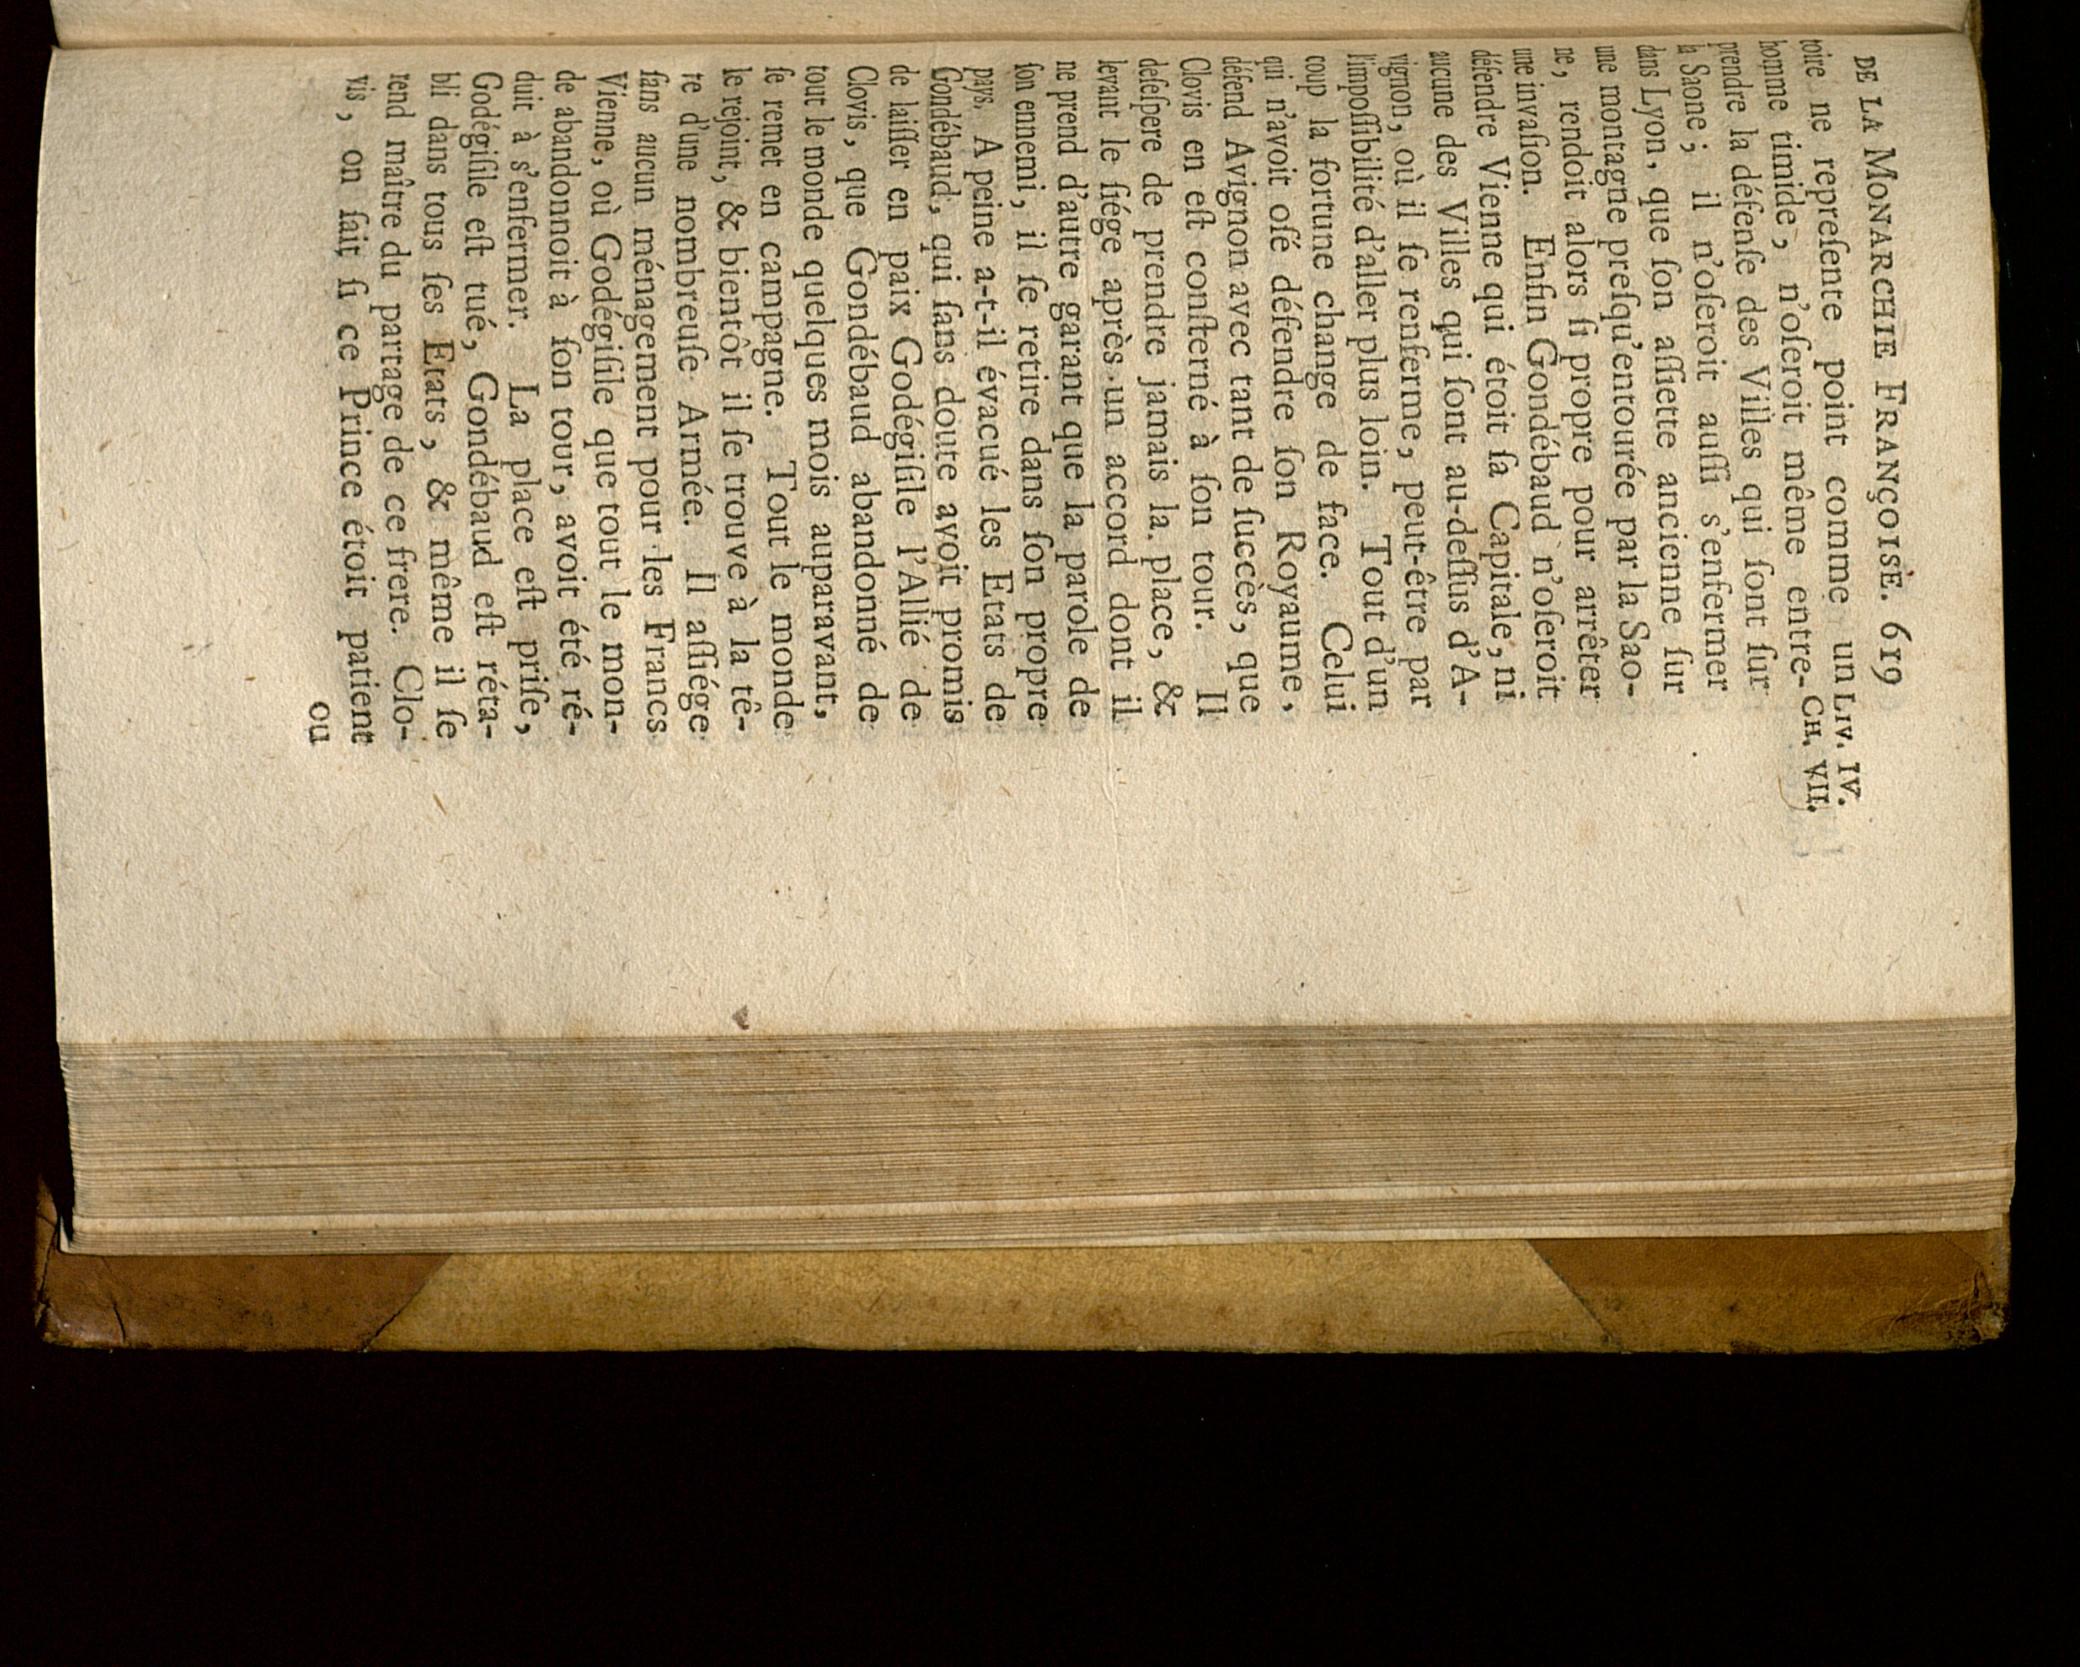 DE LA MONARCHIE FRANÇOISE. 619
toire ne repreſente point comme un LIV. IV.
homme timide, n'oſeroit même entre- CH. VII.
prendre la défenſe des Villes qui ſont ſur
la Saone ; il n'oſeroit auſſi s'enfermer
dans Lyon, que ſon aſſiette ancienne ſur
une montagne preſqu'entourée par la Sao-
ne, rendoit alors ſi propre pour arrêter
une invaſion. Enfin Gondébaud n'oſeroit
défendre Vienne qui étoit ſa Capitale, ni
aucune des Villes qui ſont au-deſſus d'A-
vignon, où il ſe renferme, peut-être par
l'impoſſibilité d'aller plus loin. Tout d'un
coup la fortune change de face. Celui
qui n'avoit oſé défendre ſon Royaume,
défend Avignon avec tant de ſuccès, que
Clovis en eſt conſterné à ſon tour. Il
deſeſpere de prendre jamais la place, &
levant le ſiége après un accord dont il
ne prend d'autre garant que la parole de
ſon ennemi, il ſe retire dans ſon propre
pays. A peine a-t-il évacué les Etats de
Gondébaud, qui ſans doute avoit promis
de laiſſer en paix Godégiſile l'Allié de
Clovis, que Gondébaud abandonné de
tout le monde quelques mois auparavant,
ſe remet en campagne. Tout le monde
le rejoint, & bientôt il ſe trouve à la tê-
te d'une nombreuſe Armée. Il aſſiége
ſans aucun ménagement pour les Francs
Vienne, où Godégiſile que tout le mon-
de abandonnoit à ſon tour, avoit été ré-
duit à s'enfermer. La place eſt priſe,
Godégiſile eſt tué, Gondébaud eſt réta-
bli dans tous ſes Etats, & même il ſe
rend maître du partage de ce frere. Clo-
vis, on ſait ſi ce Prince étoit patient
ou